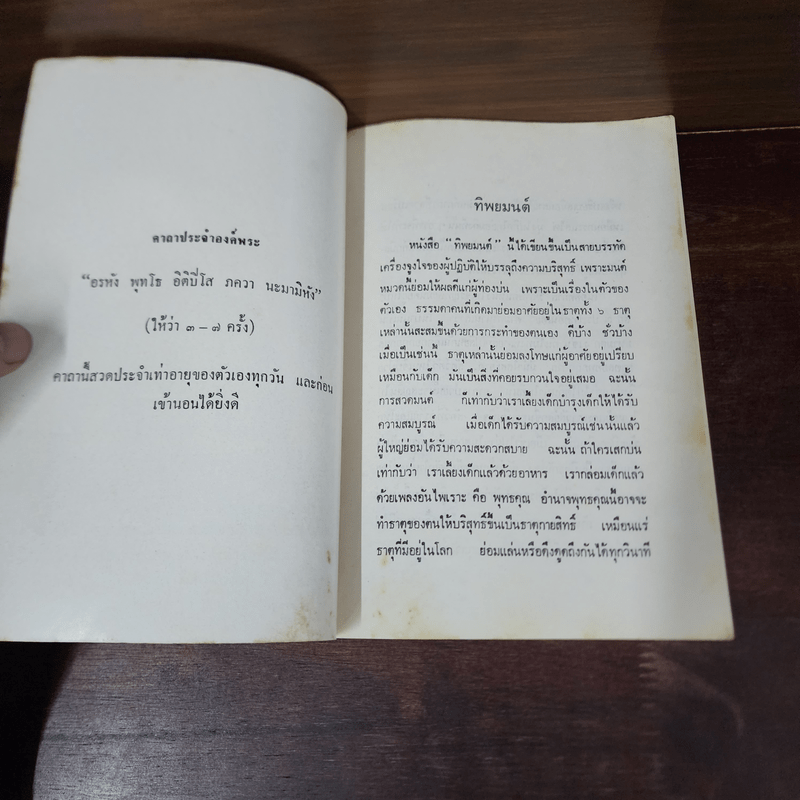 คาถาประจำองค์พระ
“อรหัง พุทโธ อิติปิโส ภควา นะมามิหัง”
(ให้ว่า ๓ – ๗ ครั้ง)
คาถานี้สวดประจำเท่าอายุของตัวเองทุกวัน และก่อน
เข้านอนได้ยิ่งดี
ทิพยมนต์
หนังสือ “ทิพยมนต์” นี้ได้เขียนขึ้นเป็นสายบรรทัด
เครื่องจูงใจของผู้ปฏิบัติให้บรรลุถึงความบริสุทธิ์ เพราะมนต์
หมวดนี้ย่อมให้ผลดีแก่ผู้ท่องบ่น เพราะเป็นเรื่องในตัวของ
ตัวเอง ธรรมดาคนที่เกิดมาย่อมอาศัยอยู่ในธาตุทั้ง ๖ ธาตุ
เหล่านั้นสะสมขึ้นด้วยการกระทำของตนเอง ดีบ้าง ชั่วบ้าง
เมื่อเป็นเช่นนี้ ธาตุเหล่านั้นย่อมลงโทษแก่ผู้อาศัยอยู่เปรียบ
เหมือนกับเด็ก มันเป็นสิ่งที่คอยรบกวนใจอยู่เสมอ ฉะนั้น
การสวดมนต์ ก็เท่ากับว่าเราเลี้ยงเด็กบำรุงเด็กให้ได้รับ
ความสมบูรณ์ เมื่อเด็กได้รับความสมบูรณ์เช่นนั้นแล้ว
ผู้ใหญ่ย่อมได้รับความสะดวกสบาย ฉะนั้น ถ้าใครเสกบ่น
เท่ากับว่า เราเลี้ยงเด็กแล้วด้วยอาหาร เรากล่อมเด็กแล้ว
ด้วยเพลงอันไพเราะ คือ พุทธคุณ อำนาจพุทธคุณนี้อาจจะ
ทำธาตุของตนให้บริสุทธิ์ขึ้นเป็นธาตุกายสิทธิ์ เหมือนแร่
ธาตุที่มีอยู่ในโลก ย่อมแล่นหรือดึงดูดถึงกันได้ทุกวินาที